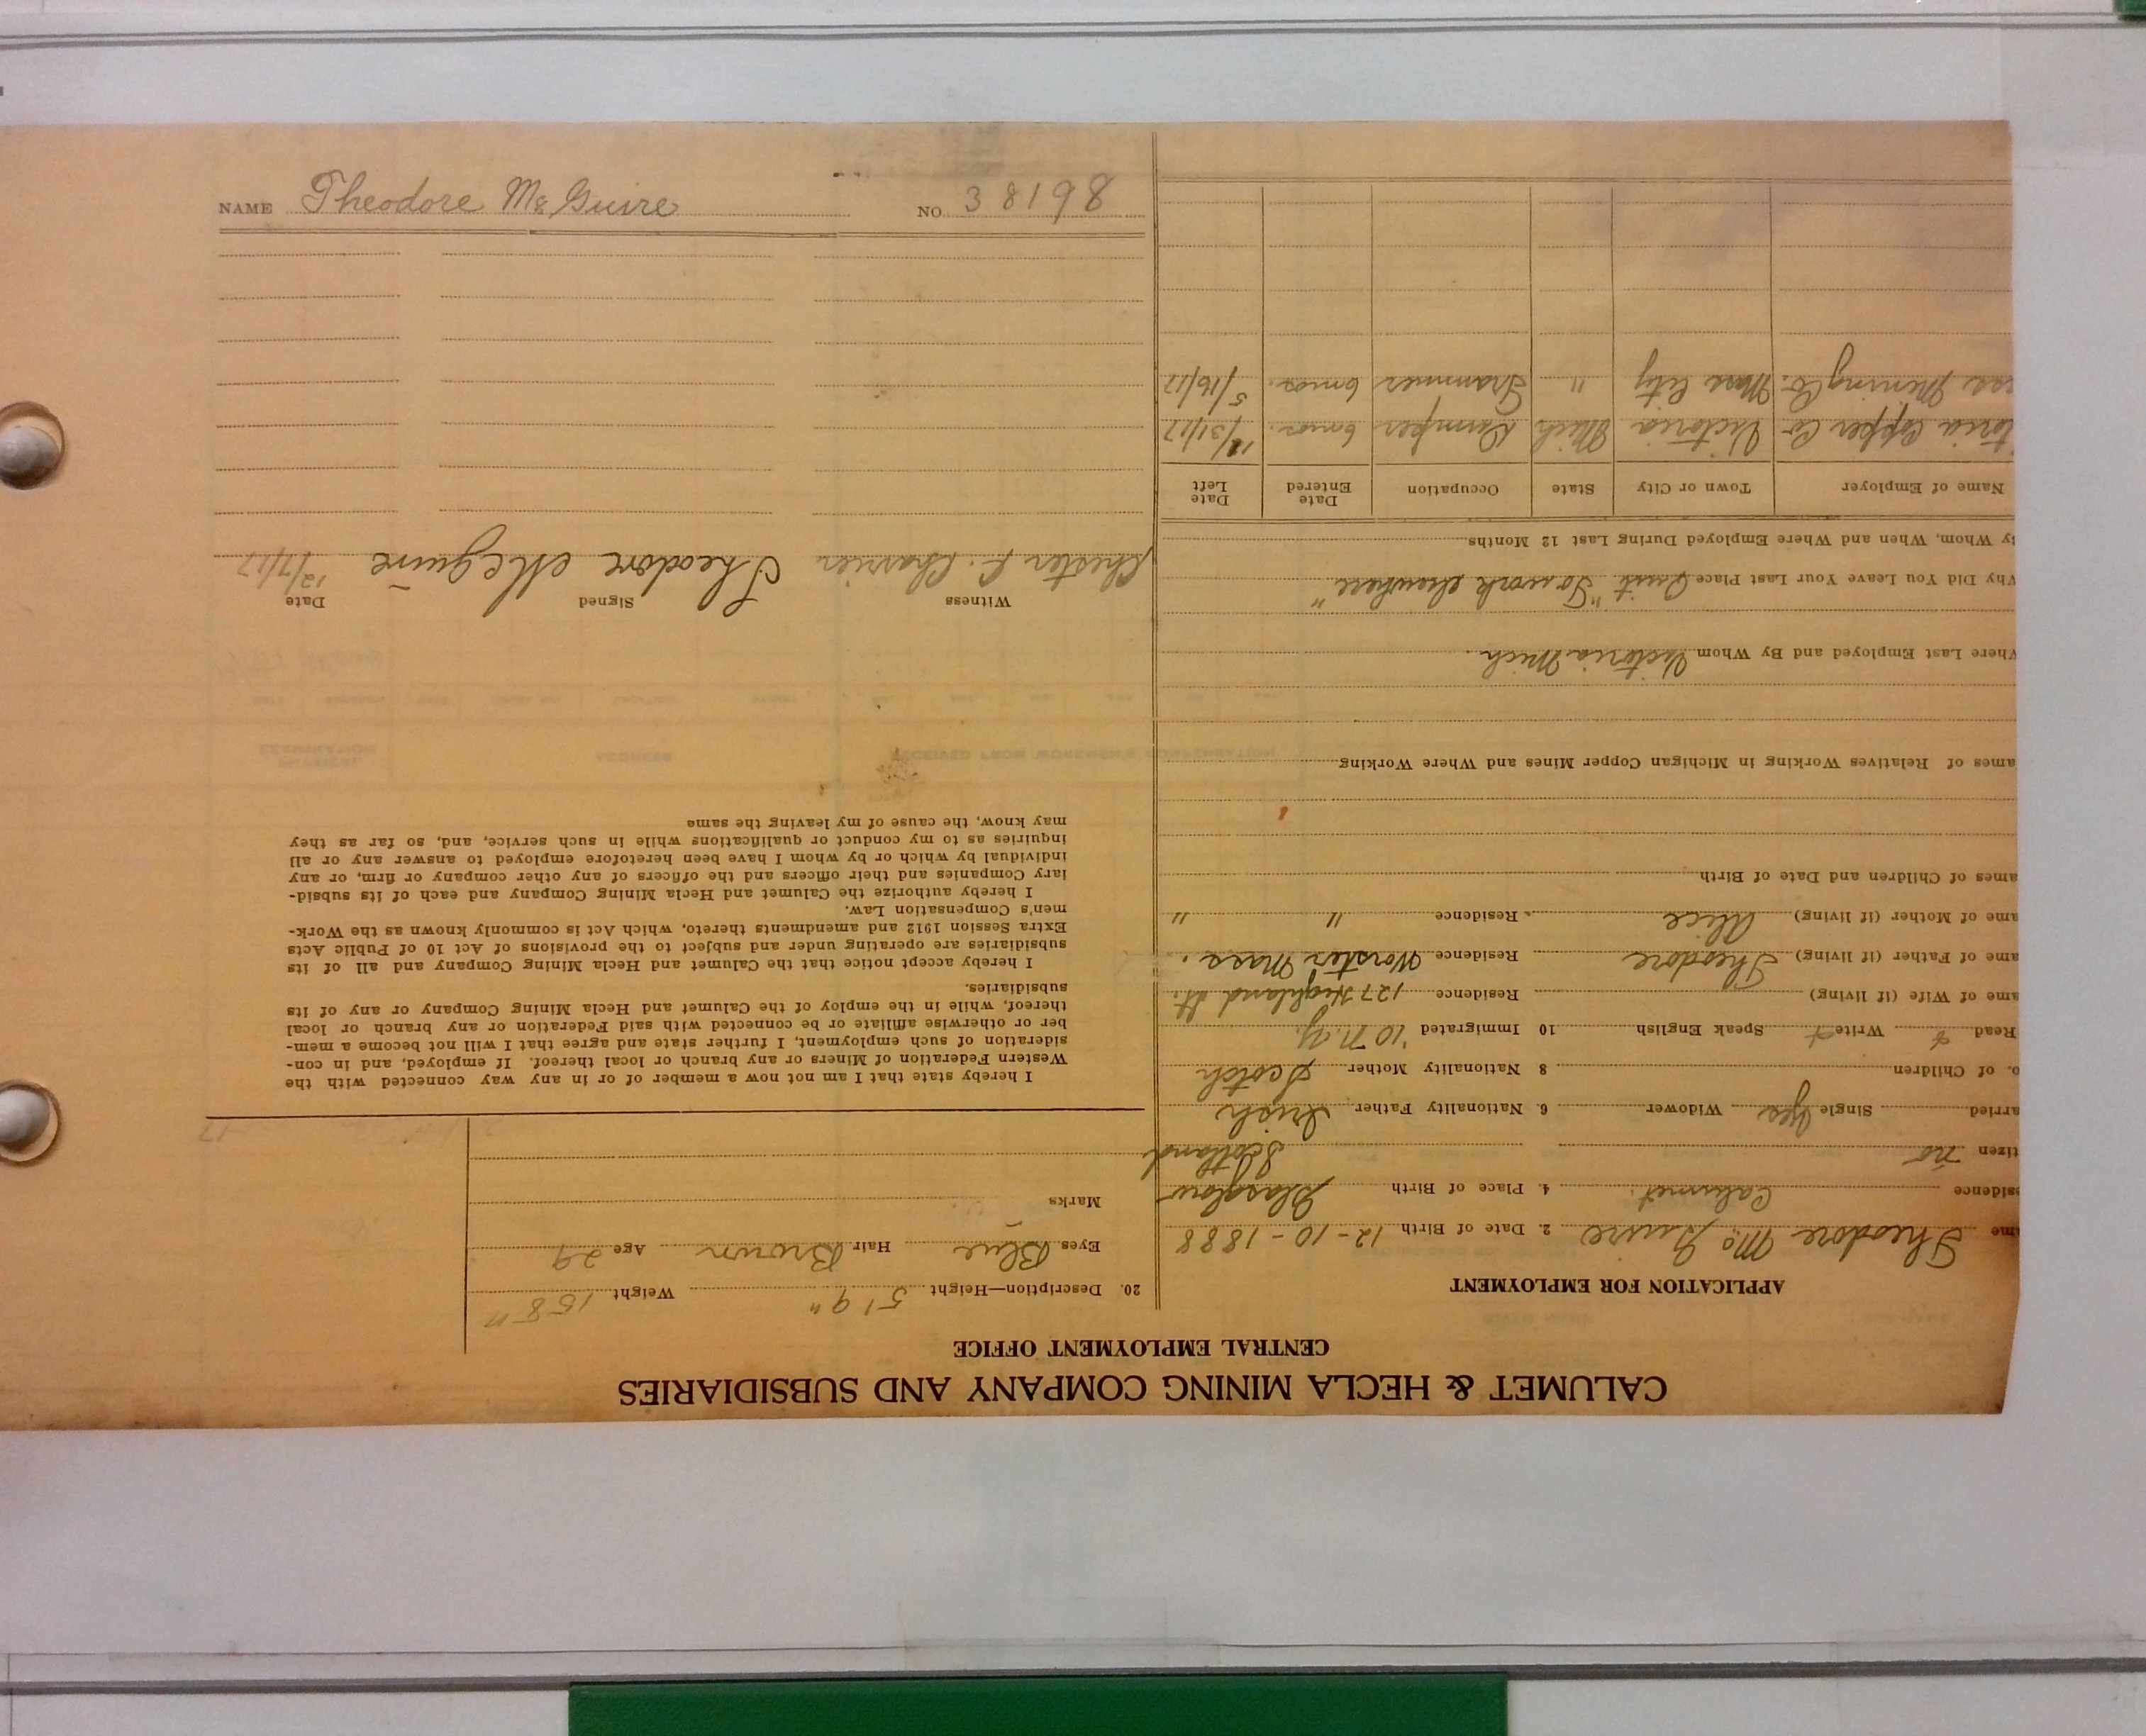 CALUMET & HECLA MINING COMPANY AND SUBSIDIARIES
CENTRAL EMPLOYMENT OFFICE
APPLICATION FOR EMPLOYMENT
ame Theodore Mc Guire 2. Date of Birth 12-10-1888
esidence Calumet. 4. Place of Birth Glasgow
tizen no Scotland
arried Single Yes Widower 6. Nationality Father Irish
o. of Children 8 Nationality Mother Scotch
Read Write Speak English 10 Immigrated '10 N.Y.
ame of Wife (if living) Residence 127 Highland St.
ame of Father (if living) Theodore Residence Worster Mass.
ame of Mother (if living) Alice Residence " "
ames of Children and Date of Birth
ames of Relatives Working in Michigan Copper Mines and Where Working
here Last Employed and By Whom Victoria Mich.
hy Did You Leave Your Last Place Quit "To work elsewhere"
y Whom, When and Where Employed During Last 12 Months
Name of Employer Town or City State Occupation Date Entered Date Left
toria Copper Co Victoria Mich 6 mos. /31/17
ss Mining Co. Mass City " Trammer 6 mos. 5/16/17
20. Description—Height 5' 9" Weight 158
Eyes Blue Hair Brown Age 29
Marks
I hereby state that I am not now a member of or in any way connected with the
Western Federation of Miners or any branch or local thereof. If employed, and in con-
sideration of such employment, I further state and agree that I will not become a mem-
ber or otherwise affiliate or be connected with said Federation or any branch or local
thereof, while in the employ of the Calumet and Hecla Mining Company or any of its
subsidiaries.
I hereby accept notice that the Calumet and Hecla Mining Company and all of its
subsidiaries are operating under and subject to the provisions of Act 10 of Public Acts
Extra Session 1912 and amendments thereto, which Act is commonly known as the Work-
men's Compensation Law.
I hereby authorize the Calumet and Hecla Mining Company and each of its subsid-
iary Companies and their officers and the officers of any other company or firm, or any
individual by which or by whom I have been heretofore employed to answer any or all
inquiries as to my conduct or qualifications while in such service, and, so far as they
may know, the cause of my leaving the same
Witness Signed Date
Chester F. Theodore McGuire 12/7/17
NAME Theodore Mc Guire NO. 38198